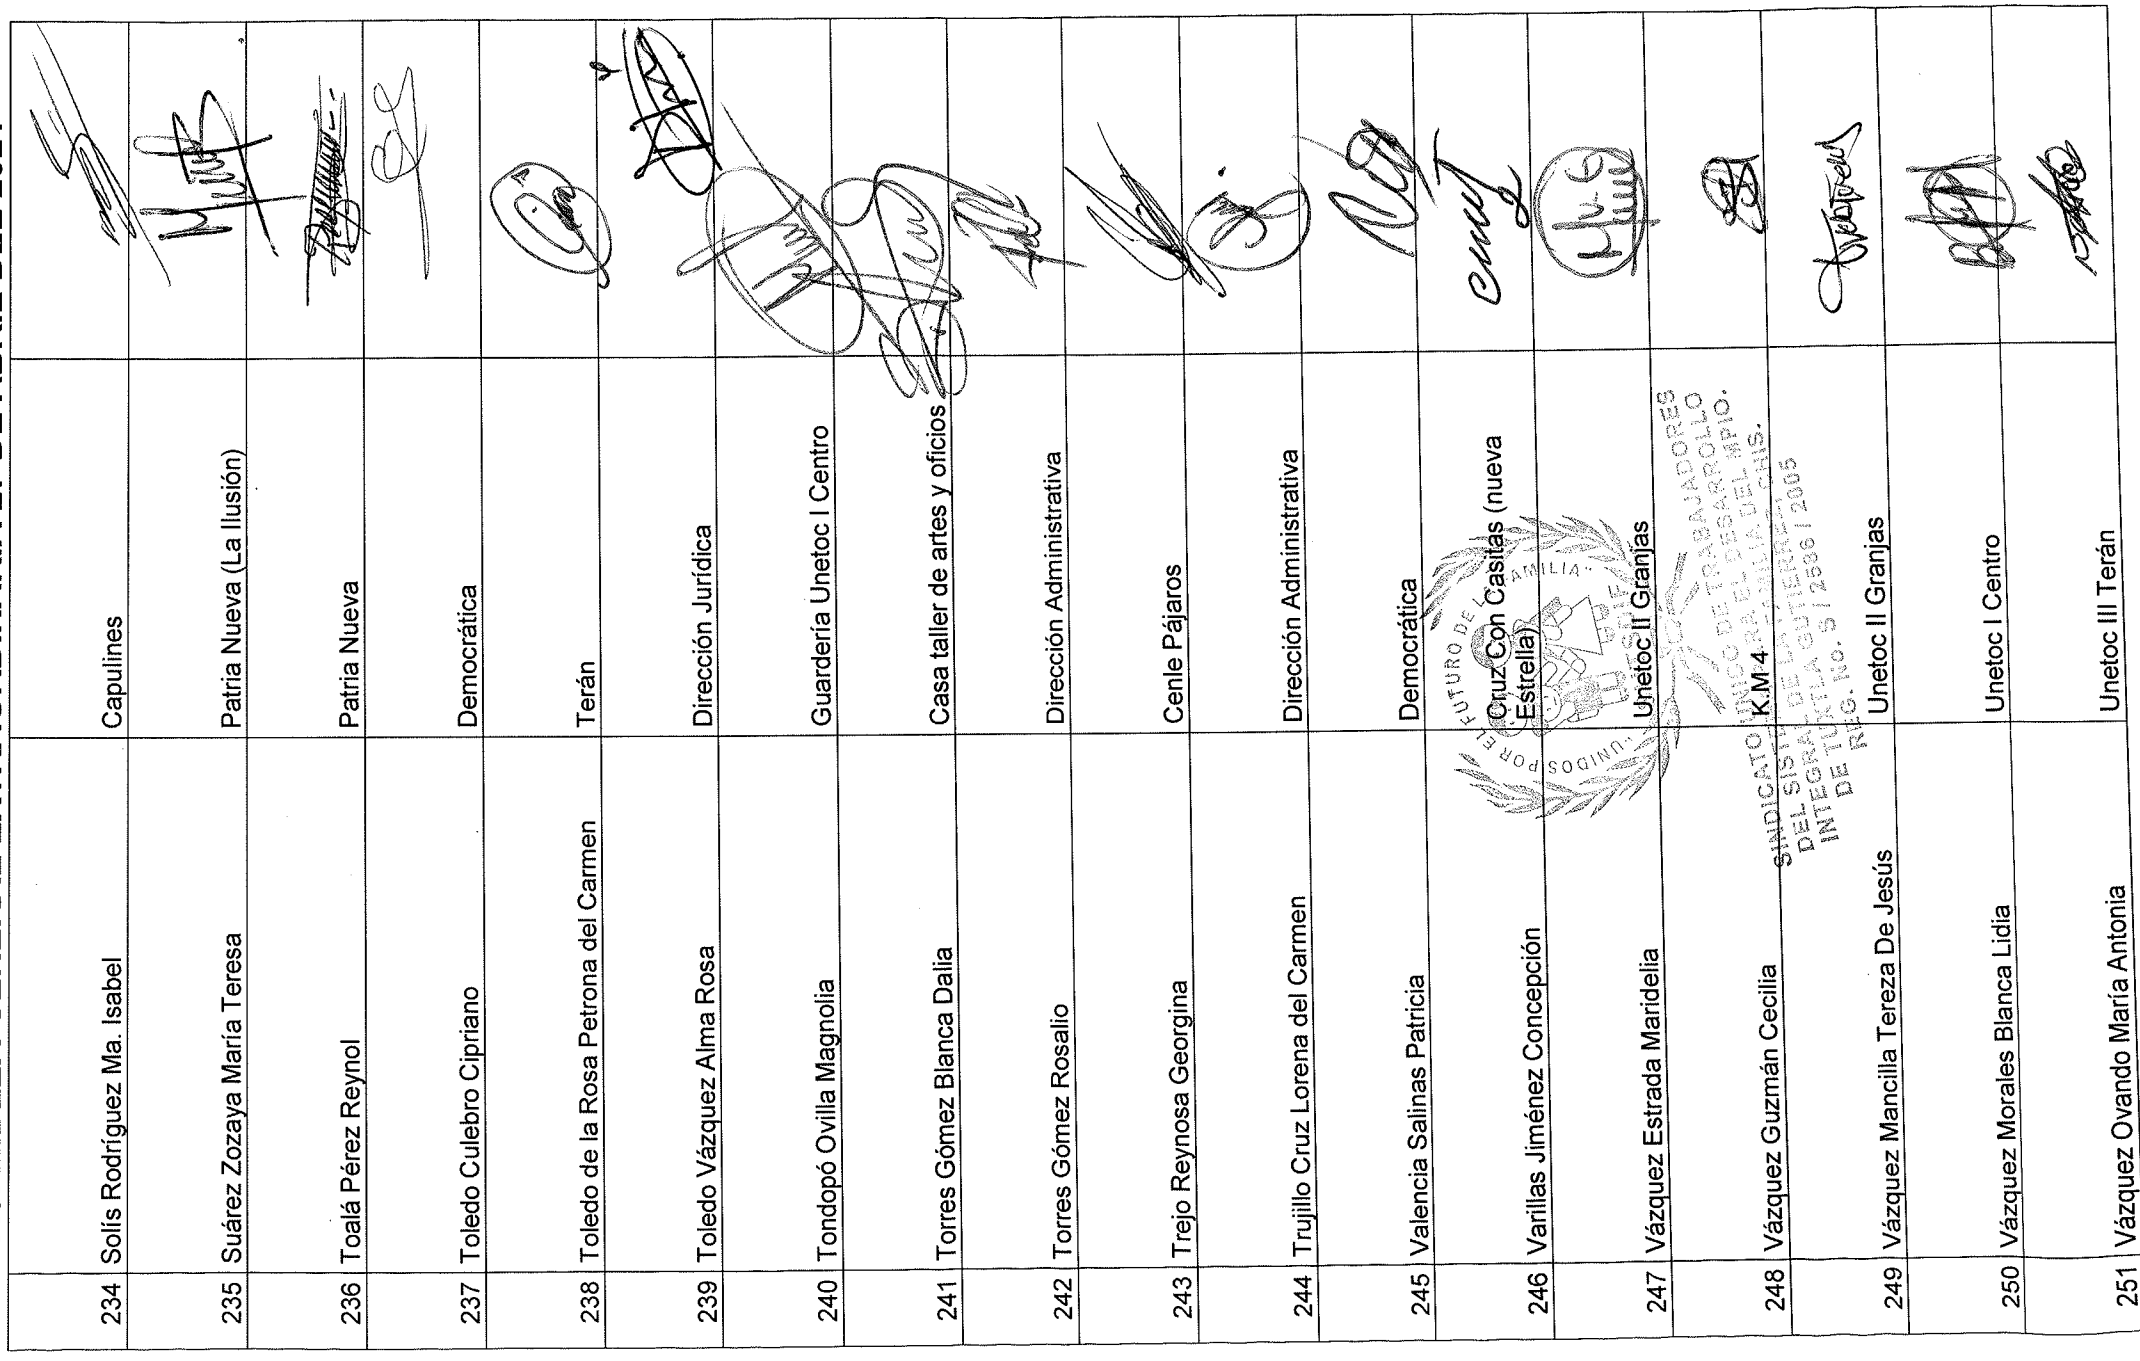 234 Solís Rodríguez Ma. Isabel Capulines
235 Suárez Zozaya María Teresa Patria Nueva (La Ilusión)
236 Toalá Pérez Reynol Patria Nueva
237 Toledo Culebro Cipriano Democrática
238 Toledo de la Rosa Petrona del Carmen Terán
239 Toledo Vázquez Alma Rosa Dirección Jurídica
240 Tondopó Ovilla Magnolia Guardería Unetoc I Centro
241 Torres Gómez Blanca Dalia Casa taller de artes y oficios
242 Torres Gómez Rosalio Dirección Administrativa
243 Trejo Reynosa Georgina Cenle Pájaros
244 Trujillo Cruz Lorena del Carmen Dirección Administrativa
245 Valencia Salinas Patricia Democrática
246 Varillas Jiménez Concepción Cruz Con Casitas (nueva
Estrella)
247 Vázquez Estrada Maridelia Unetoc II Granjas
248 Vázquez Guzmán Cecilia K.M 4
249 Vázquez Mancilla Tereza De Jesús Unetoc II Granjas
250 Vázquez Morales Blanca Lidia Unetoc I Centro
251 Vázquez Ovando María Antonia Unetoc III Terán
"UNIDOS POR EL FUTURO DE LA FAMILIA"
SINDICATO UNICO DE TRABAJADORES
DEL SISTEMA PARA EL DESARROLLO
INTEGRAL DE LA FAMILIA DEL MPIO.
DE TUXTLA GUTIERREZ, CHIS.
REG. NO. S / 2586 / 2005